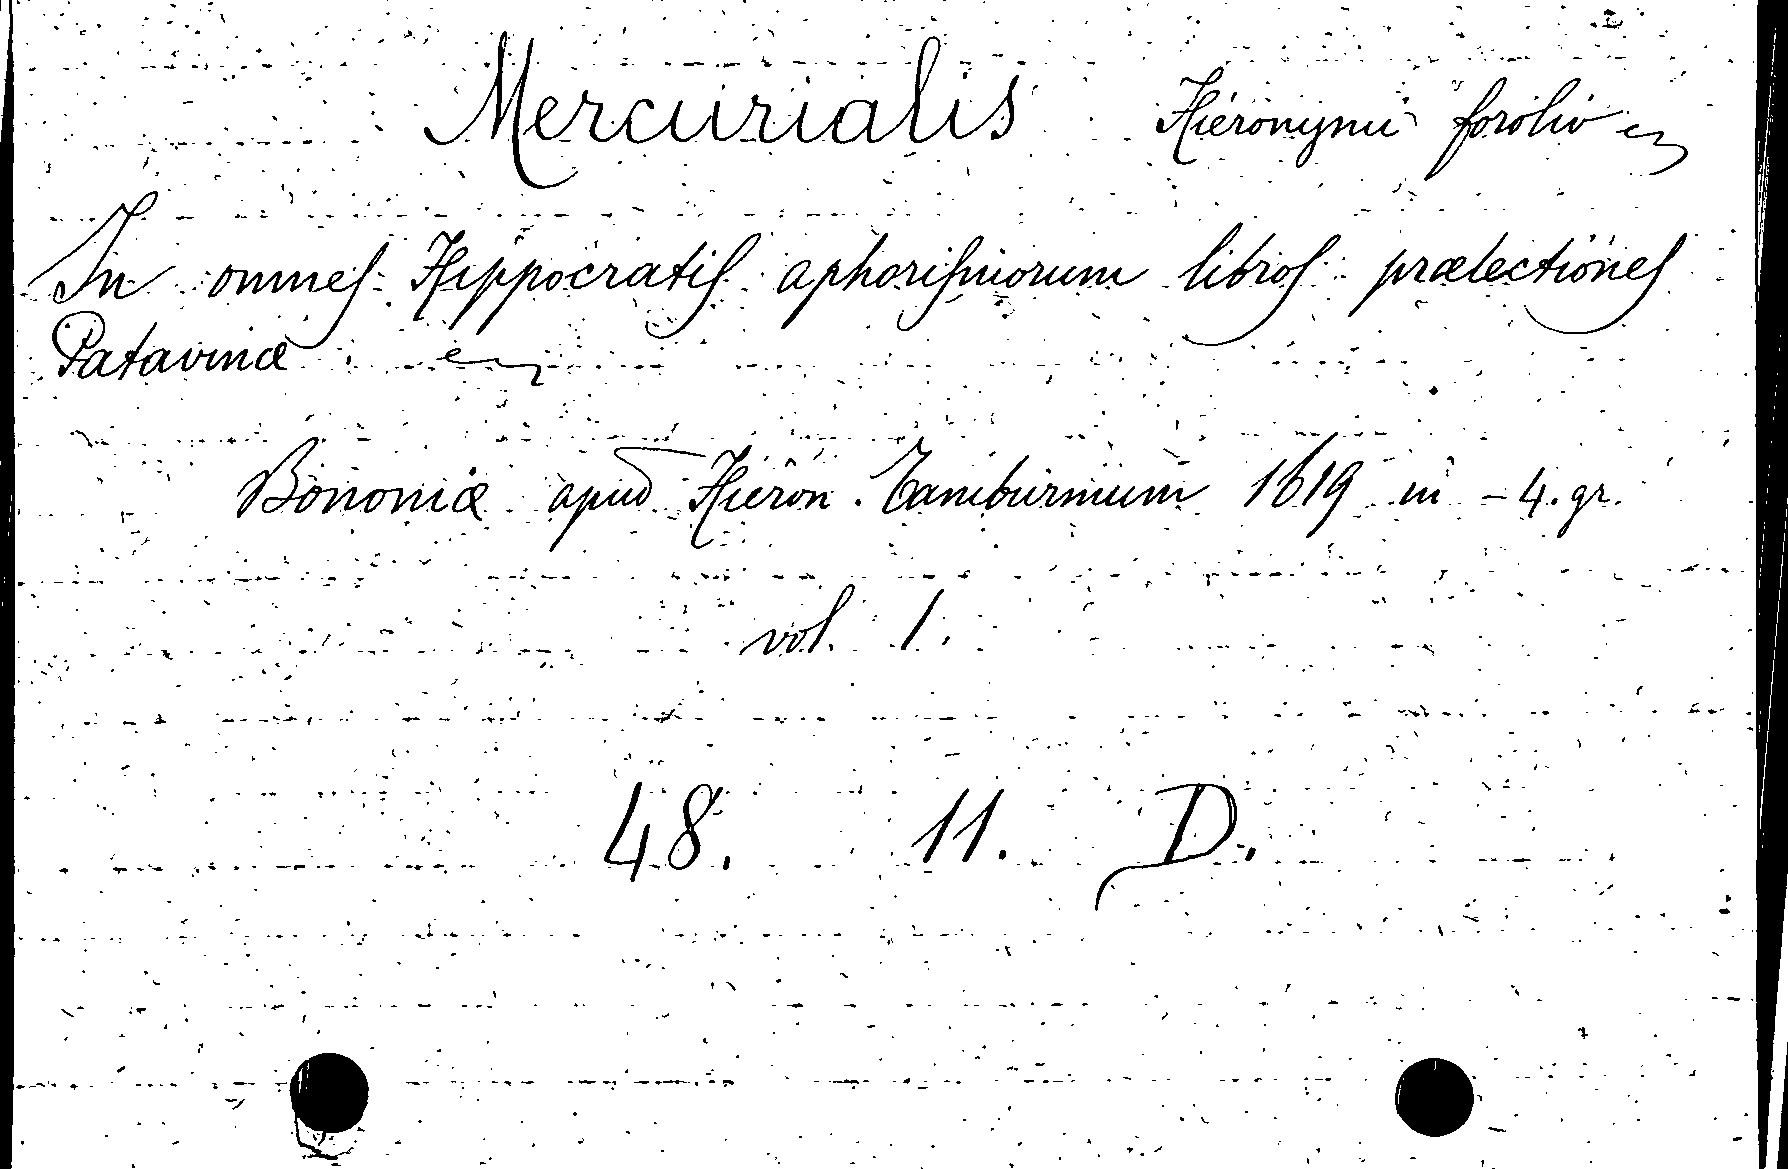 Mercurialis Hieronymi foroliv
In omnes Hippocratis aphorismorum libros prælectiones
Patavinæ
Bononiæ apud Hieron. Tamburinium 1619 in - 4. gr.
vol. 1.
48. 11. D.